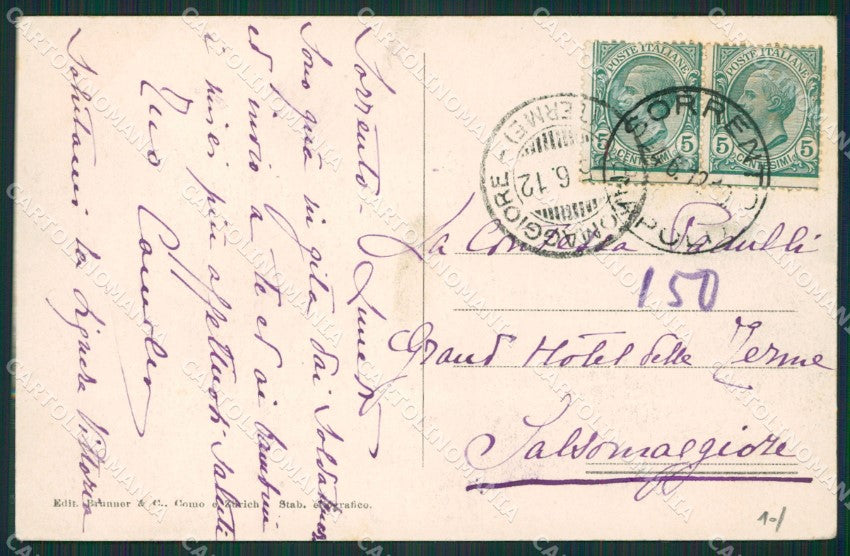 Sorrento - Lunedì
Sono quà in gita dai Soldatini
ed invio a Te ed ai bambini
i miei più affettuosi saluti
Tuo
Salutami la Signora Vittoria
La Contessa Padulli
150
Grand Hôtel delle Terme
Salsomaggiore
POSTE ITALIANE
5 CENTESIMI 5
POSTE ITALIANE
5 CENTESIMI 5
SALSOMAGGIORE
(TERME)
6.12
SORRENTO
NAPOLI
Edit. Brunner & C., Como e Zürich - Stab. eliografico.
CARTOLINOMANIA